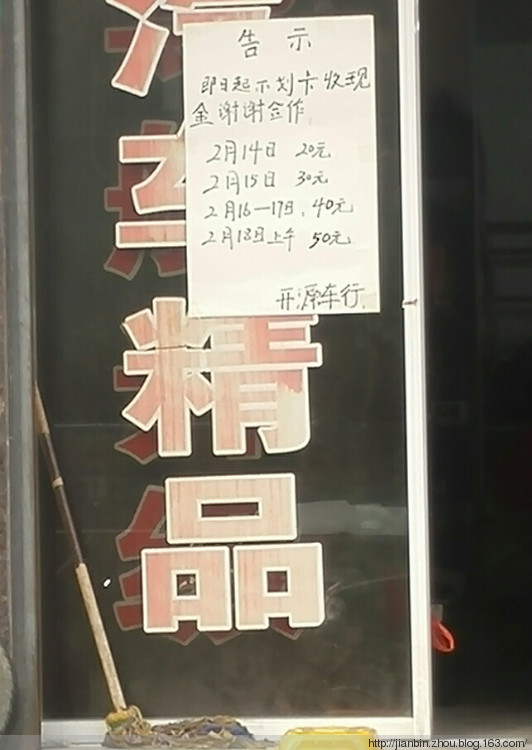 告示
即日起不划卡收现
金谢谢合作
2月14日 20元
2月15日 30元
2月16—17日,40元
2月18日上午 50元
开源车行.
汽
车
精
品
http://jianbin.zhou.blog.163.com